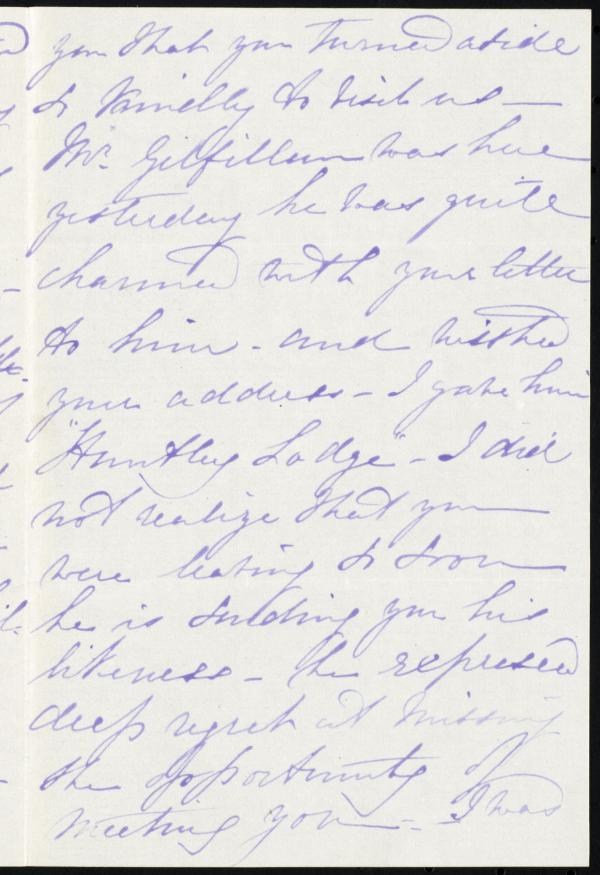 you that you turned aside
so kindly to visit us —
Mr. Gilfillan was here
yesterday he was quite
charmed with your letter
to him - and wished
your address - I gave him
"Huntley Lodge" - I did
not realize that you
were leaving so soon
he is sending you his
likeness - he expressed
deep regret at missing
the opportunity of
meeting you - I was